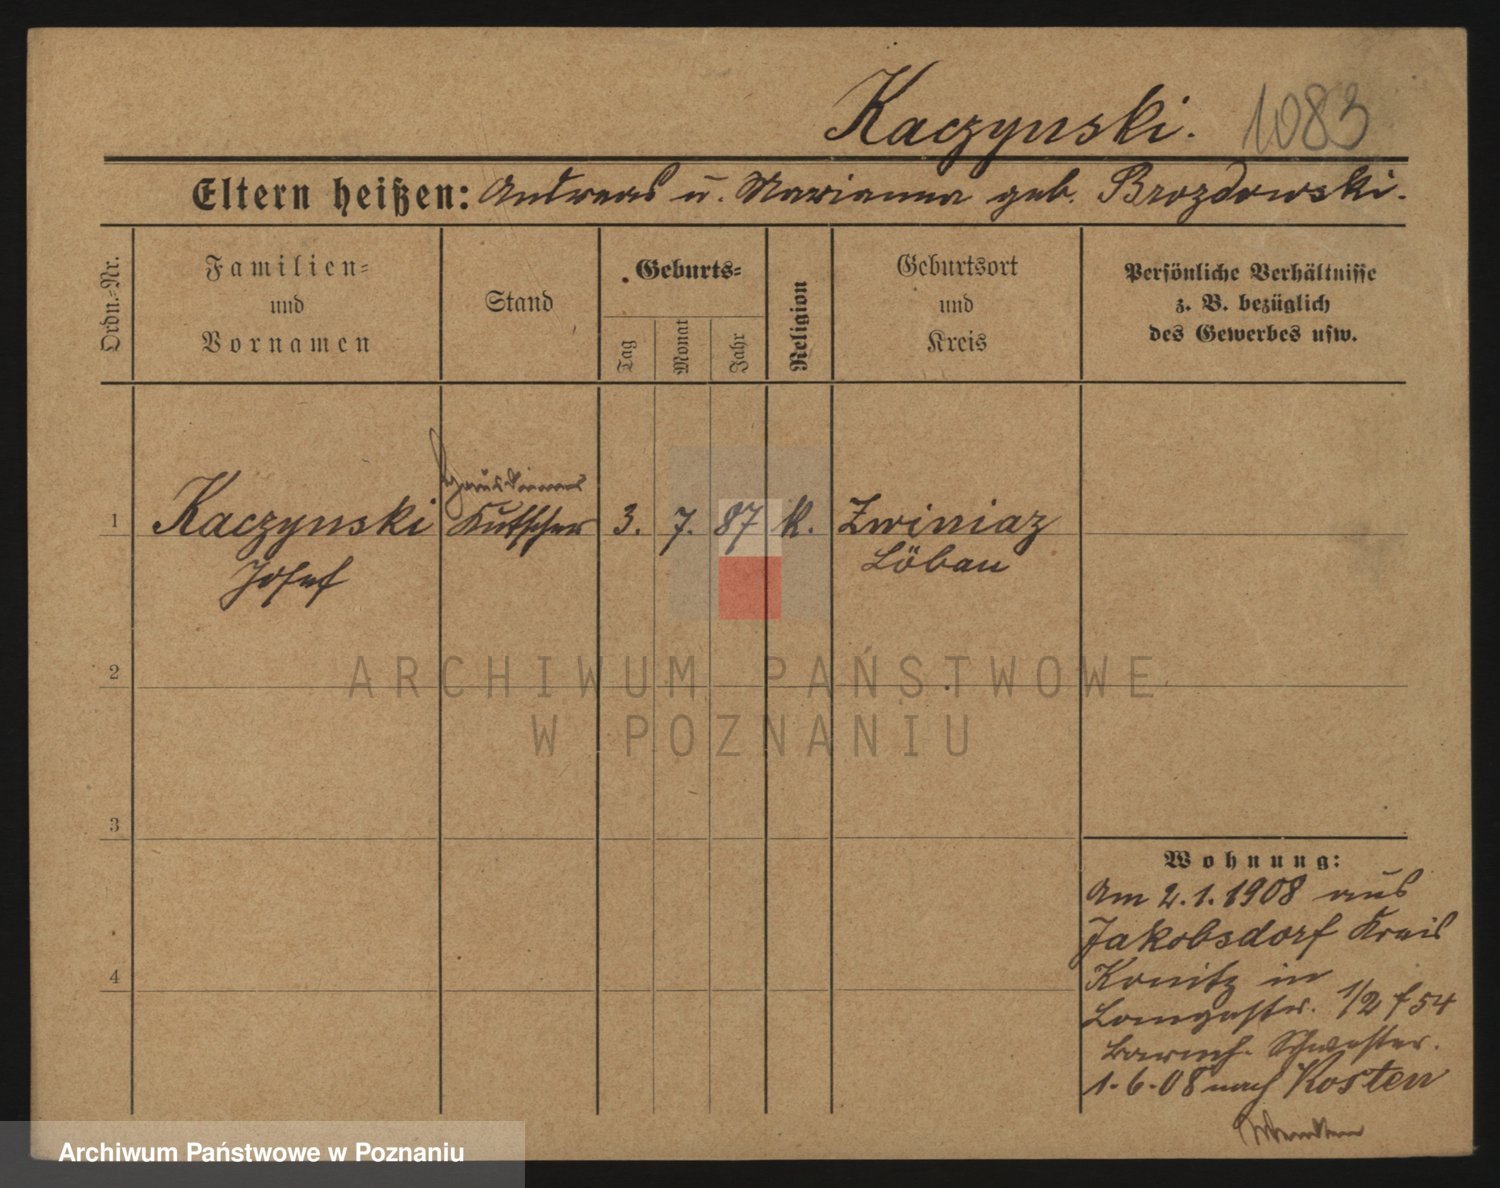 Kaczynski. 1083
Eltern heißen: Andreas u. Marianna geb. Brozdowski.
Ordn.-Nr.
Familien-
und
Vornamen
Stand
Geburts-
Tag
Monat
Jahr
Religion
Geburtsort
und
Kreis
Persönliche Verhältnisse
z. B. bezüglich
des Gewerbes usw.
Hausdiener
1 Kaczynski Kutscher 3. 7. 87 k. Zwiniaz
Josef Löbau
2
ARCHIWUM PAŃSTWOWE
W POZNANIU
3
4
Wohnung:
Am 2.1.1908 aus
Jakobsdorf Kreis
Konitz in
1/2 f 54
Schwester.
1.6.08 nach Kosten
Archiwum Państwowe w Poznaniu